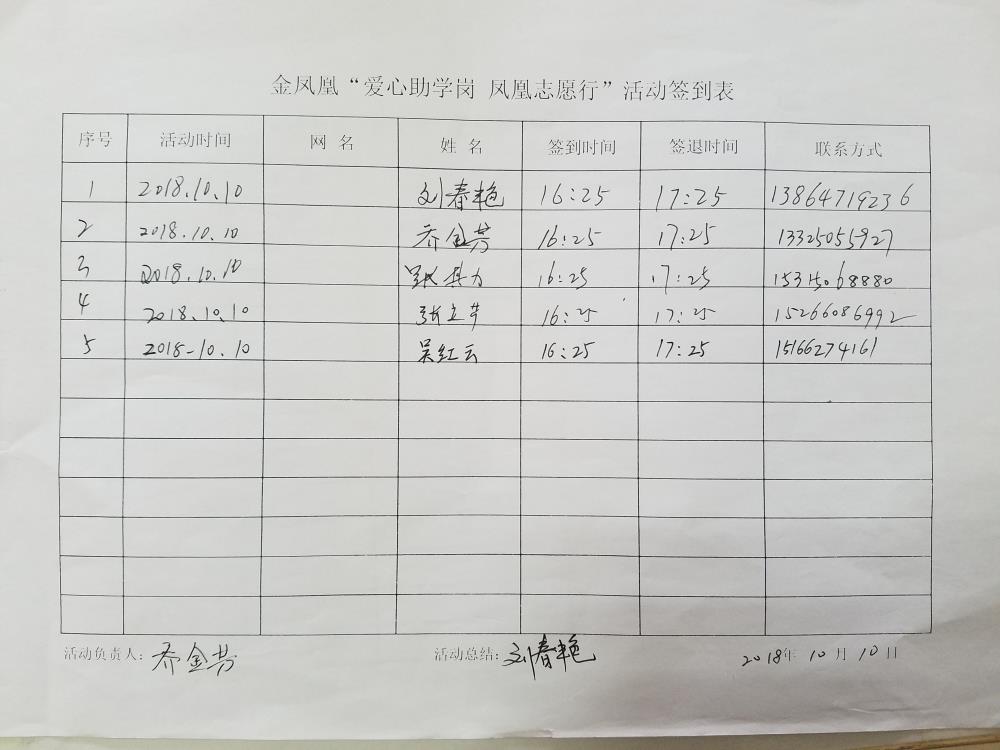 金凤凰“爱心助学岗 凤凰志愿行”活动签到表
序号 活动时间 网 名 姓 名 签到时间 签退时间 联系方式
1 2018.10.10 刘春艳 16:25 17:25 13864719236
2 2018.10.10 乔金芳 16:25 17:25 13325055927
3 2018.10.10 16:25 17:25 15315068880
4 2018.10.10 张立芹 16:25 17:25 15266086992
5 2018-10.10 吴红云 16:25 17:25 15166274161
活动负责人: 乔金芳 活动总结: 刘春艳 2018年 10 月 10 日